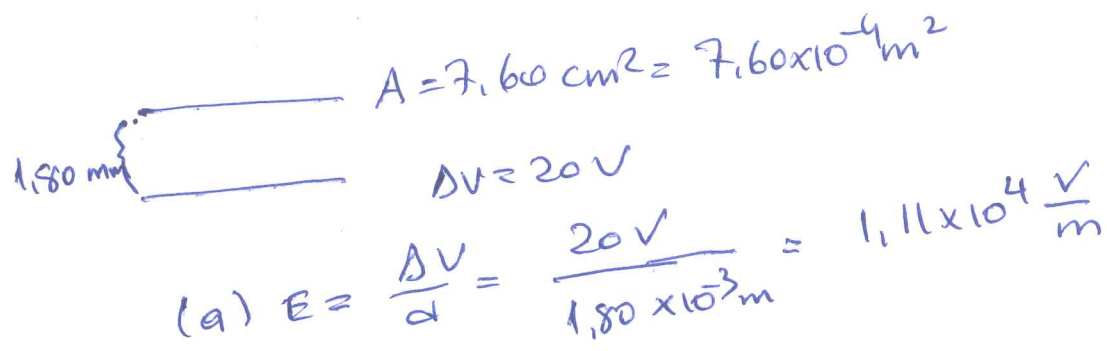 A = 7,600 cm² = 7,60x10⁻⁴ m²
1,80 mm
ΔV = 20 V
(a) E = ΔV/d = 20 V / 1,80 x10⁻³ m = 1,11x10⁴ V/m